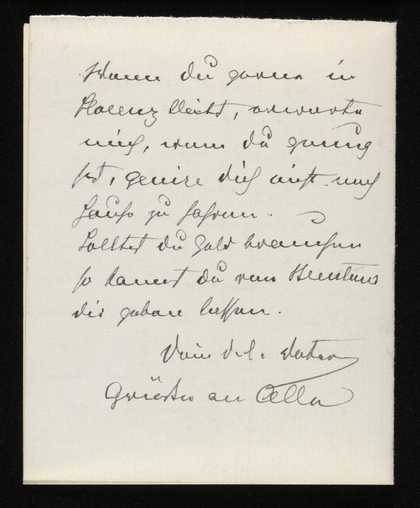 Wenn du gerne in
Florenz bleibst, erwarte
mich, wenn du genug
hast, genire dich nicht nach
Hause zu fahren.
Solltest du Geld brauchen
so kannst du von
dir geben lassen.
Dein Vater
Grüsse an Ella